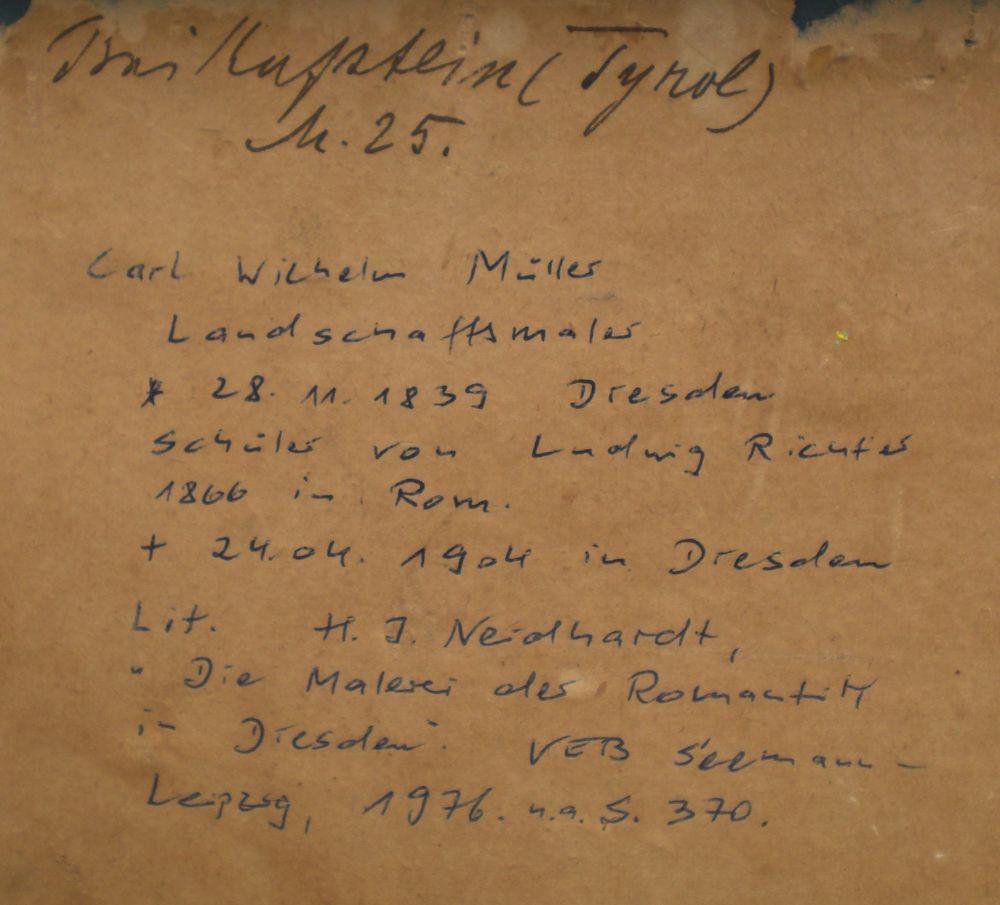 Bei Kufstein (Tyrol)
M. 25.
Carl Wilhelm Müller
Landschaftsmaler
* 28. 11. 1839 Dresden
Schüler von Ludwig Richter
1866 in Rom.
+ 24.04. 1904 in Dresden
Lit. H. J. Neidhardt,
"Die Malerei der Romantik
in Dresden". VEB Seemann-
Leipzig, 1976. u.a. S. 370.